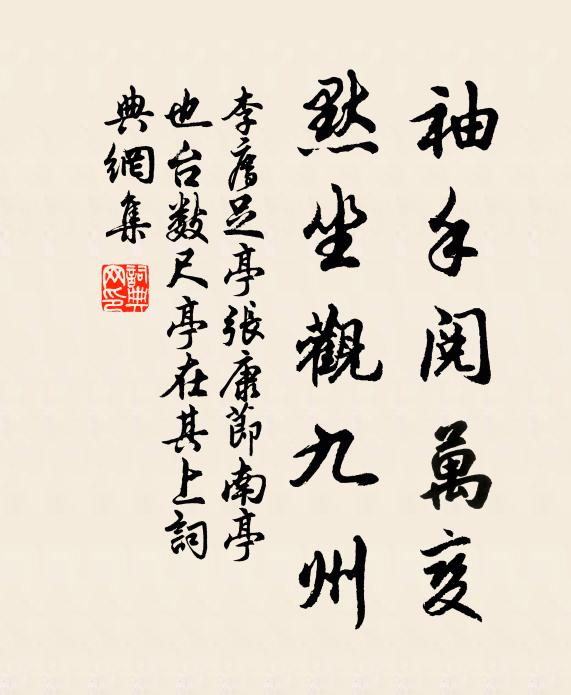 袖手閱萬變
默坐觀九州
李廌足亭張康節南亭
也台數尺亭在其上詞
典網集
詞典網印